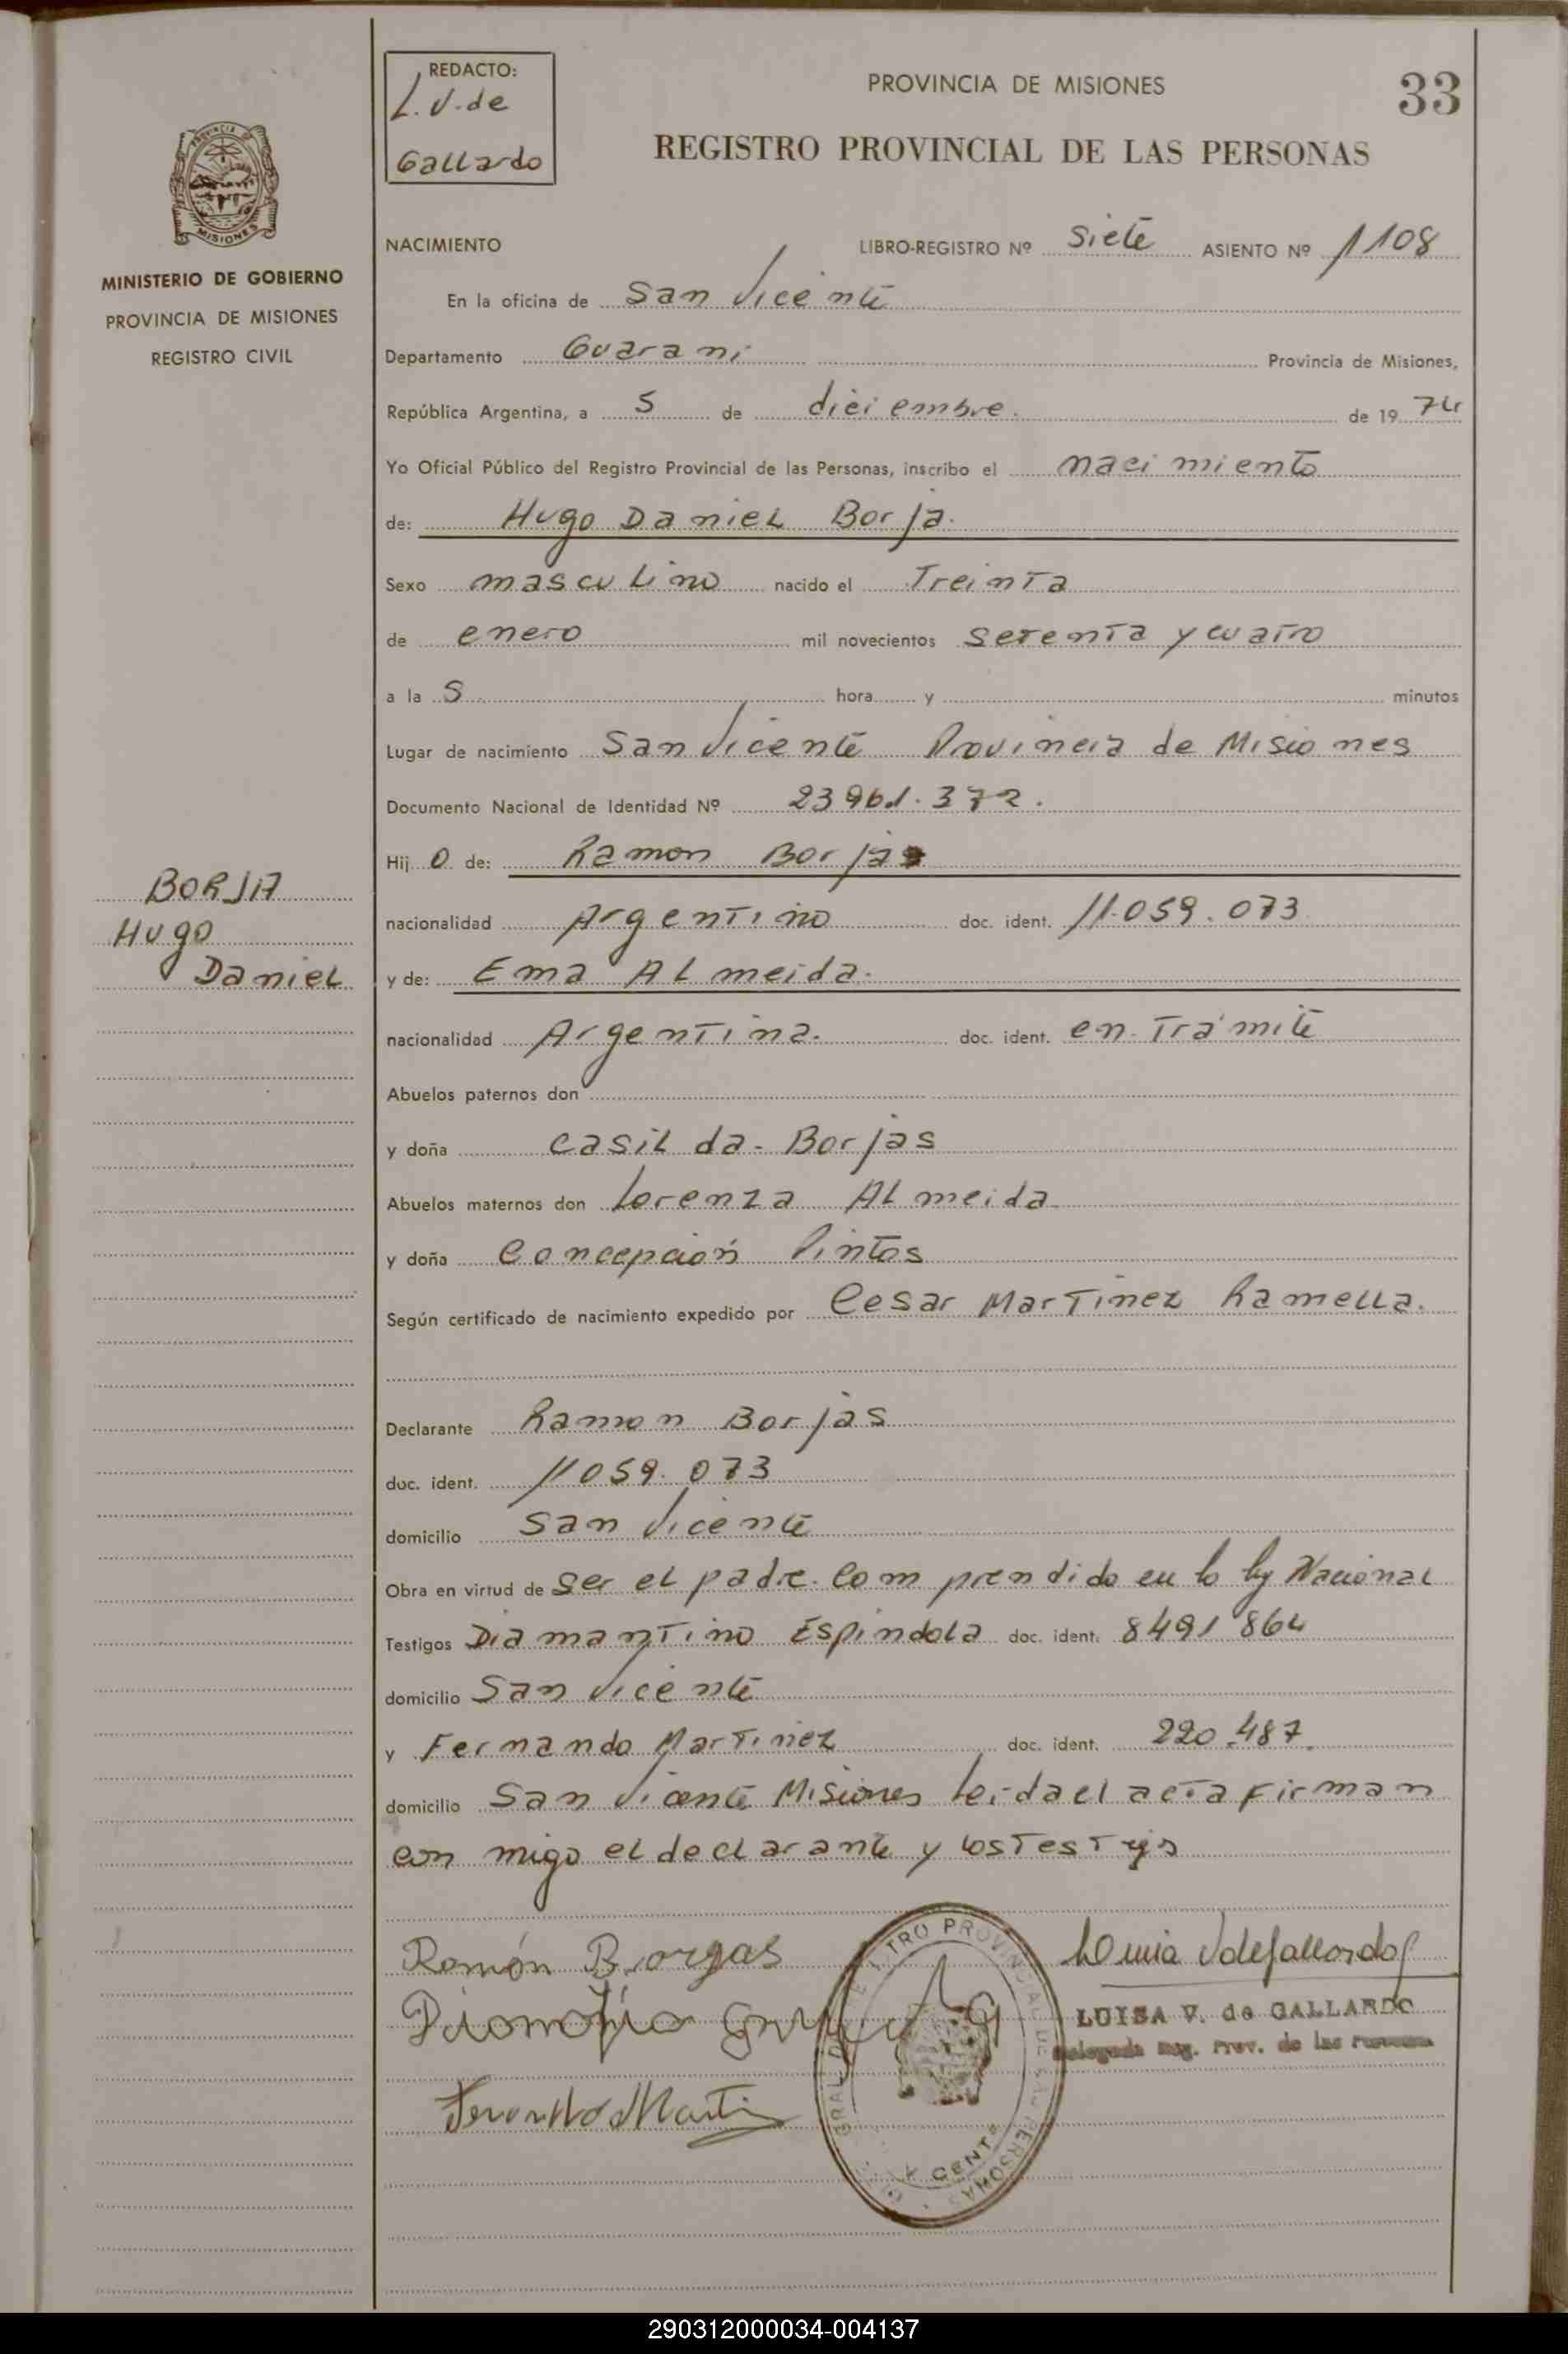 REDACTO:
L.V. de
Gallardo
PROVINCIA DE MISIONES
33
REGISTRO PROVINCIAL DE LAS PERSONAS
MISIONES
MINISTERIO DE GOBIERNO
PROVINCIA DE MISIONES
REGISTRO CIVIL
NACIMIENTO LIBRO-REGISTRO Nº Siete ASIENTO Nº 1108
En la oficina de San Vicente
Departamento Guarani Provincia de Misiones,
República Argentina, a 5 de diciembre. de 1974
Yo Oficial Público del Registro Provincial de las Personas, inscribo el nacimiento
de: Hugo Daniel Borja.
Sexo masculino nacido el Treinta
de enero mil novecientos setenta y cuatro
a la 5 hora y minutos
Lugar de nacimiento San Vicente Provincia de Misiones
Documento Nacional de Identidad Nº 23961.372.
Hijo de: Ramon Borjas
BORJA
Hugo
Daniel
nacionalidad Argentino doc. ident. 11.059.073
y de: Ema Almeida.
nacionalidad Argentina. doc. ident. en Trámite
Abuelos paternos don
y doña Casilda Borjas
Abuelos maternos don Lorenza Almeida
y doña Concepción Pintos
Según certificado de nacimiento expedido por Cesar Martinez Ramella.
Declarante Ramon Borjas
doc. ident. 11059.073
domicilio San Vicente
Obra en virtud de ser el padre. Comprendido en la ley Nacional
Testigos Diamantino Espindola doc. ident. 8491864
domicilio San Vicente
y Fernando Martinez doc. ident. 220.487.
domicilio San Vicente Misiones leida el acta firman
conmigo el declarante y los testigos
Ramón Borgas
LUISA V. de GALLARDO
Delegada Reg. Prov. de las Personas
290312000034-004137